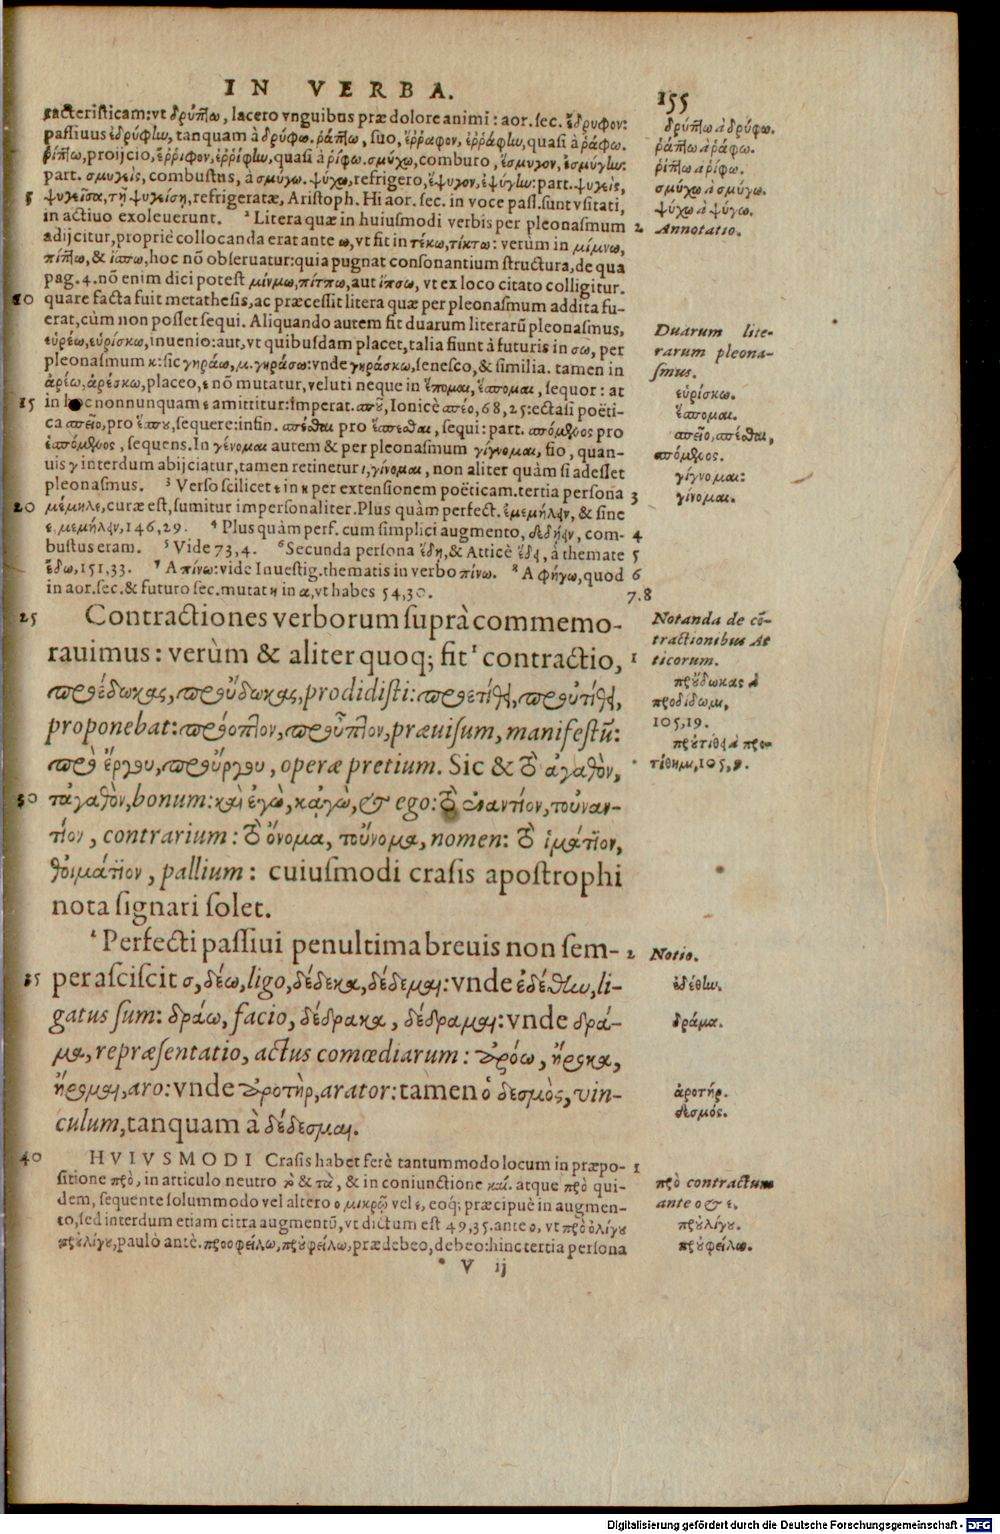 IN VERBA.
155
racteristicam: vt δρύπτω, lacero vnguibus præ dolore animi: aor. sec. ἔδρυφον:
passiuus ἐδρύφἱω, tanquam à δρύφω. ῥάπτω, suo, ἔῤῥαφον, ἐῤῥάφἱω, quasi à ῥάφω.
ῥίπτω, proijcio, ἔῤῥιφον, ἐῤῥίφἱω, quasi à ῥίφω. σμύχω, comburo, ἔσμυγον, ἐσμύγἱω:
part. σμυγεὶς, combustus, à σμύγω. ψύχω, refrigero, ἔψυγον, ἐψύγἱω: part. ψυγεὶς,
5 ψυγεῖσα, τῇ ψυγείσῃ, refrigeratæ, Aristoph. Hi aor. sec. in voce pass. sunt vsitati,
in actiuo exoleuerunt. ² Litera quæ in huiusmodi verbis per pleonasmum
adijcitur, propriè collocanda erat ante ω, vt fit in τέκω, τίκτω: verùm in μίμνω,
πίπτω, & ἵσπω, hoc nō obseruatur: quia pugnat consonantium structura, de qua
pag. 4. nō enim dici potest μίνμω, πίτπω, aut ἵπσω, vt ex loco citato colligitur.
10 quare facta fuit metathesis, ac præcessit litera quæ per pleonasmum addita fu-
erat, cùm non posset sequi. Aliquando autem fit duarum literarū pleonasmus,
εὑρέω, εὑρίσκω, inuenio: aut, vt quibusdam placet, talia fiunt à futuris in σω, per
pleonasmum κ: sic γηράω, μ. γηράσω: vnde γηράσκω, senesco, & similia. tamen in
ἀρέω, ἀρέσκω, placeo, ε nō mutatur, veluti neque in ἕπομαι, ἕσπομαι, sequor: at
15 in hoc nonnunquam ε amittitur: Imperat. σποῦ, Ionicè σπέο, 68, 25: ectasi poëti-
ca σπεῖο, pro ἕσπου, sequere: infin. σπέσθαι pro ἕσπεσθαι, sequi: part. σπόμενος pro
ἑσπόμενος, sequens. In γένομαι autem & per pleonasmum γίγνομαι, fio, quan-
uis γ interdum abijciatur, tamen retinetur ι, γίνομαι, non aliter quàm si adesset
pleonasmus. ³ Verso scilicet ε in η per extensionem poëticam. tertia persona
20 μέμηλε, curæ est, sumitur impersonaliter. Plus quàm perfect. ἐμεμήλειν, & sine
ε, μεμήλειν, 146, 29. ⁴ Plus quàm perf. cum simplici augmento, δεδήειν, com-
bustus eram. ⁵ Vide 73, 4. ⁶ Secunda persona ἔδῃ, & Atticè ἔδει, à themate
ἔδω, 151, 33. ⁷ A πίνω: vide Inuestig. thematis in verbo πίνω. ⁸ A φήγω, quod
in aor. sec. & futuro sec. mutat η in α, vt habes 54, 30.
25 Contractiones verborum suprà commemo-
rauimus: verùm & aliter quoq; fit ¹ contractio,
προέδωκας, προύδωκας, prodidisti: προετίθει, προυτίθει,
proponebat: πρόοπτον, προῦπτον, præuisum, manifestū:
πρὸ ἔργου, προὔργου, operæ pretium. Sic & τὸ ἀγαθὸν,
30 τἀγαθὸν, bonum: καὶ ἐγὼ, κἀγὼ, & ego: τὸ ἐναντίον, τοὐναν-
τίον, contrarium: τὸ ὄνομα, τοὔνομα, nomen: τὸ ἱμάτιον,
θοἰμάτιον, pallium: cuiusmodi crasis apostrophi
nota signari solet.
² Perfecti passiui penultima breuis non sem-
35 per asciscit σ, δέω, ligo, δέδεκα, δέδεμαι: vnde ἐδέθἱω, li-
gatus sum: δράω, facio, δέδρακα, δέδραμαι: vnde δρά-
μα, repræsentatio, actus comœdiarum: ἀρόω, ἤροκα,
ἤρομαι, aro: vnde ἀροτὴρ, arator: tamen ὁ δεσμὸς, vin-
culum, tanquam à δέδεσμαι.
40 HVIVSMODI Crasis habet ferè tantummodo locum in præpo-
sitione πρὸ, in articulo neutro τὸ & τὰ, & in coniunctione καί. atque πρὸ qui-
dem, sequente solummodo vel altero ο μικρῷ vel ε, eoq; præcipuè in augmen-
to, sed interdum etiam citra augmentū, vt dictum est 49, 35. ante ο, vt πρὸ ὀλίγου
προυλίγου, paulò antè. προοφείλω, προυφείλω, prædebeo, debeo: hinc tertia persona
V ij
δρύπτω à δρύφω.
ῥάπτω à ῥάφω.
ῥίπτω à ῥίφω.
σμύχω à σμύγω.
ψύχω à ψύγω.
2 Annotatio.
Duarum lite-
rarum pleona-
smus.
εὑρίσκω.
ἕσπομαι.
σπεῖο, σπέσθαι,
σπόμενος.
γίγνομαι:
3 γίνομαι.
4
5
6
7.8
Notanda de cō-
tractionibus At
1 ticorum.
προύδωκας à
προδίδωμι,
105, 19.
προυτίθει à προ-
τίθημι, 105, 9.
2 Notio.
ἐδέθἱω.
δράμα.
ἀροτήρ.
δεσμός.
1
πρὸ contractum
ante ο & ε.
προυλίγου.
προυφείλω.
Digitalisierung gefördert durch die Deutsche Forschungsgemeinschaft - DFG